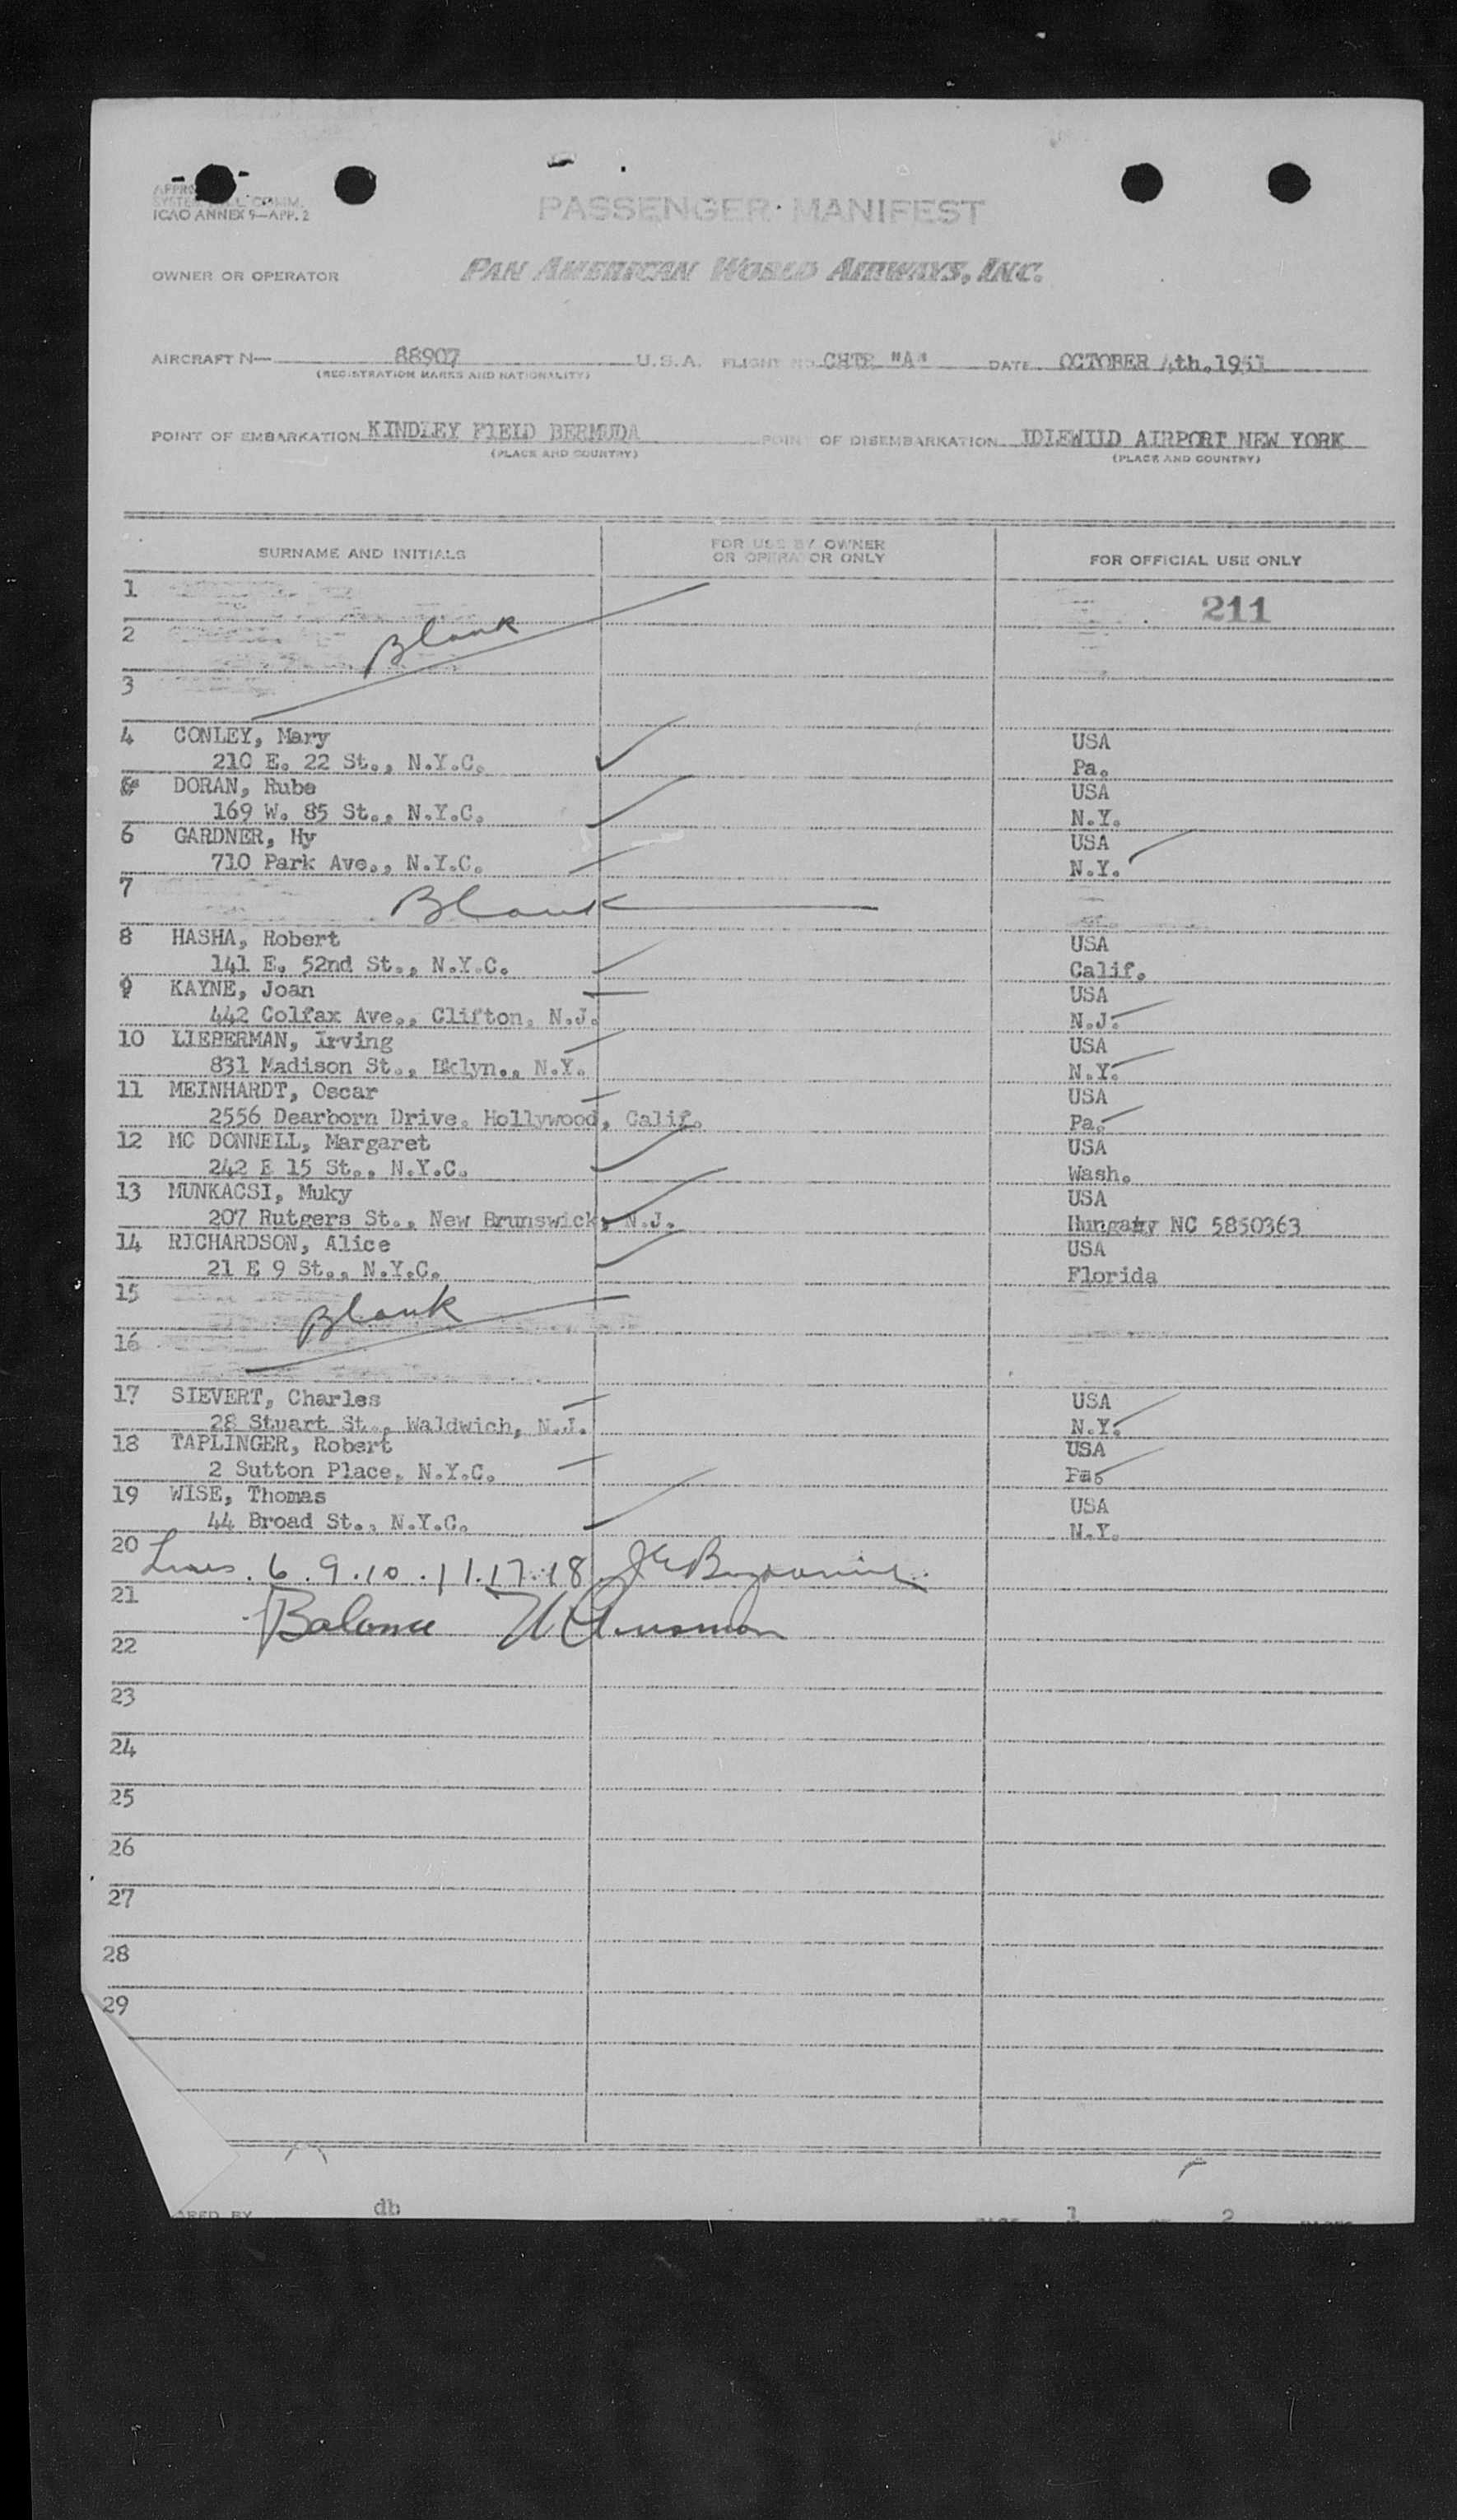 ICAO ANNEX 9—APP. 2
PASSENGER MANIFEST
OWNER OR OPERATOR PAN AMERICAN WORLD AIRWAYS, INC.
AIRCRAFT N— 88907 U.S.A. FLIGHT NO. CHTR "A" DATE OCTOBER 4th, 1951
(REGISTRATION MARKS AND NATIONALITY)
POINT OF EMBARKATION KINDLEY FIELD BERMUDA POINT OF DISEMBARKATION IDLEWILD AIRPORT NEW YORK
(PLACE AND COUNTRY) (PLACE AND COUNTRY)
SURNAME AND INITIALS FOR USE BY OWNER OR OPERATOR ONLY FOR OFFICIAL USE ONLY
1 211
2 Blank
3
4 CONLEY, Mary USA
210 E. 22 St., N.Y.C. Pa.
5 DORAN, Rube USA
169 W. 85 St., N.Y.C. N.Y.
6 GARDNER, Hy USA
710 Park Ave., N.Y.C. N.Y.
7 Blank
8 HASHA, Robert USA
141 E. 52nd St., N.Y.C. Calif.
9 KAYNE, Joan USA
442 Colfax Ave., Clifton, N.J. N.J.
10 LIEBERMAN, Irving USA
831 Madison St., Bklyn., N.Y. N.Y.
11 MEINHARDT, Oscar USA
2556 Dearborn Drive, Hollywood, Calif. Pa.
12 MC DONNELL, Margaret USA
242 E 15 St., N.Y.C. Wash.
13 MUNKACSI, Muky USA
207 Rutgers St., New Brunswick, N.J. Hungary NC 5850363
14 RICHARDSON, Alice USA
21 E 9 St., N.Y.C. Florida
15 Blank
16
17 SIEVERT, Charles USA
28 Stuart St., Waldwich, N.J. N.Y.
18 TAPLINGER, Robert USA
2 Sutton Place, N.Y.C.
19 WISE, Thomas USA
44 Broad St., N.Y.C. N.Y.
20 Lines. 6. 9. 10. 11. 17. 18
21 Balance
22
23
24
25
26
27
28
29
db 1 2